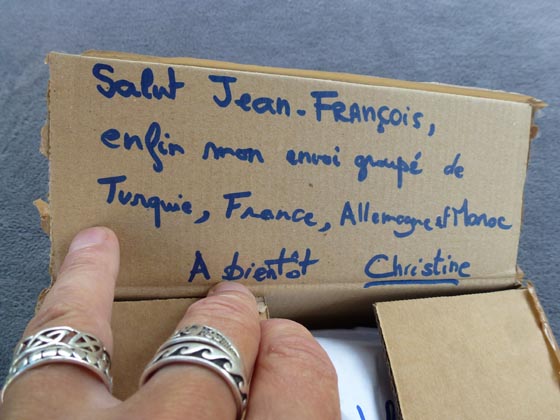 Salut Jean-FRANÇOIS,
enfin mon envoi groupé de
Turquie, France, Allemagne et Maroc
A bientôt Christine